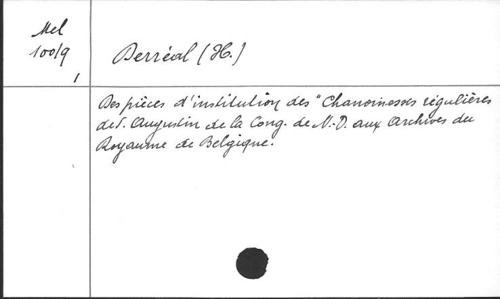 Mel
100/9
1
Derréal (H.)
Des pièces d'institution des "Chanoinesses régulières
de S. Augustin de la Cong. de N.-D. aux Archives du
Royaume de Belgique.